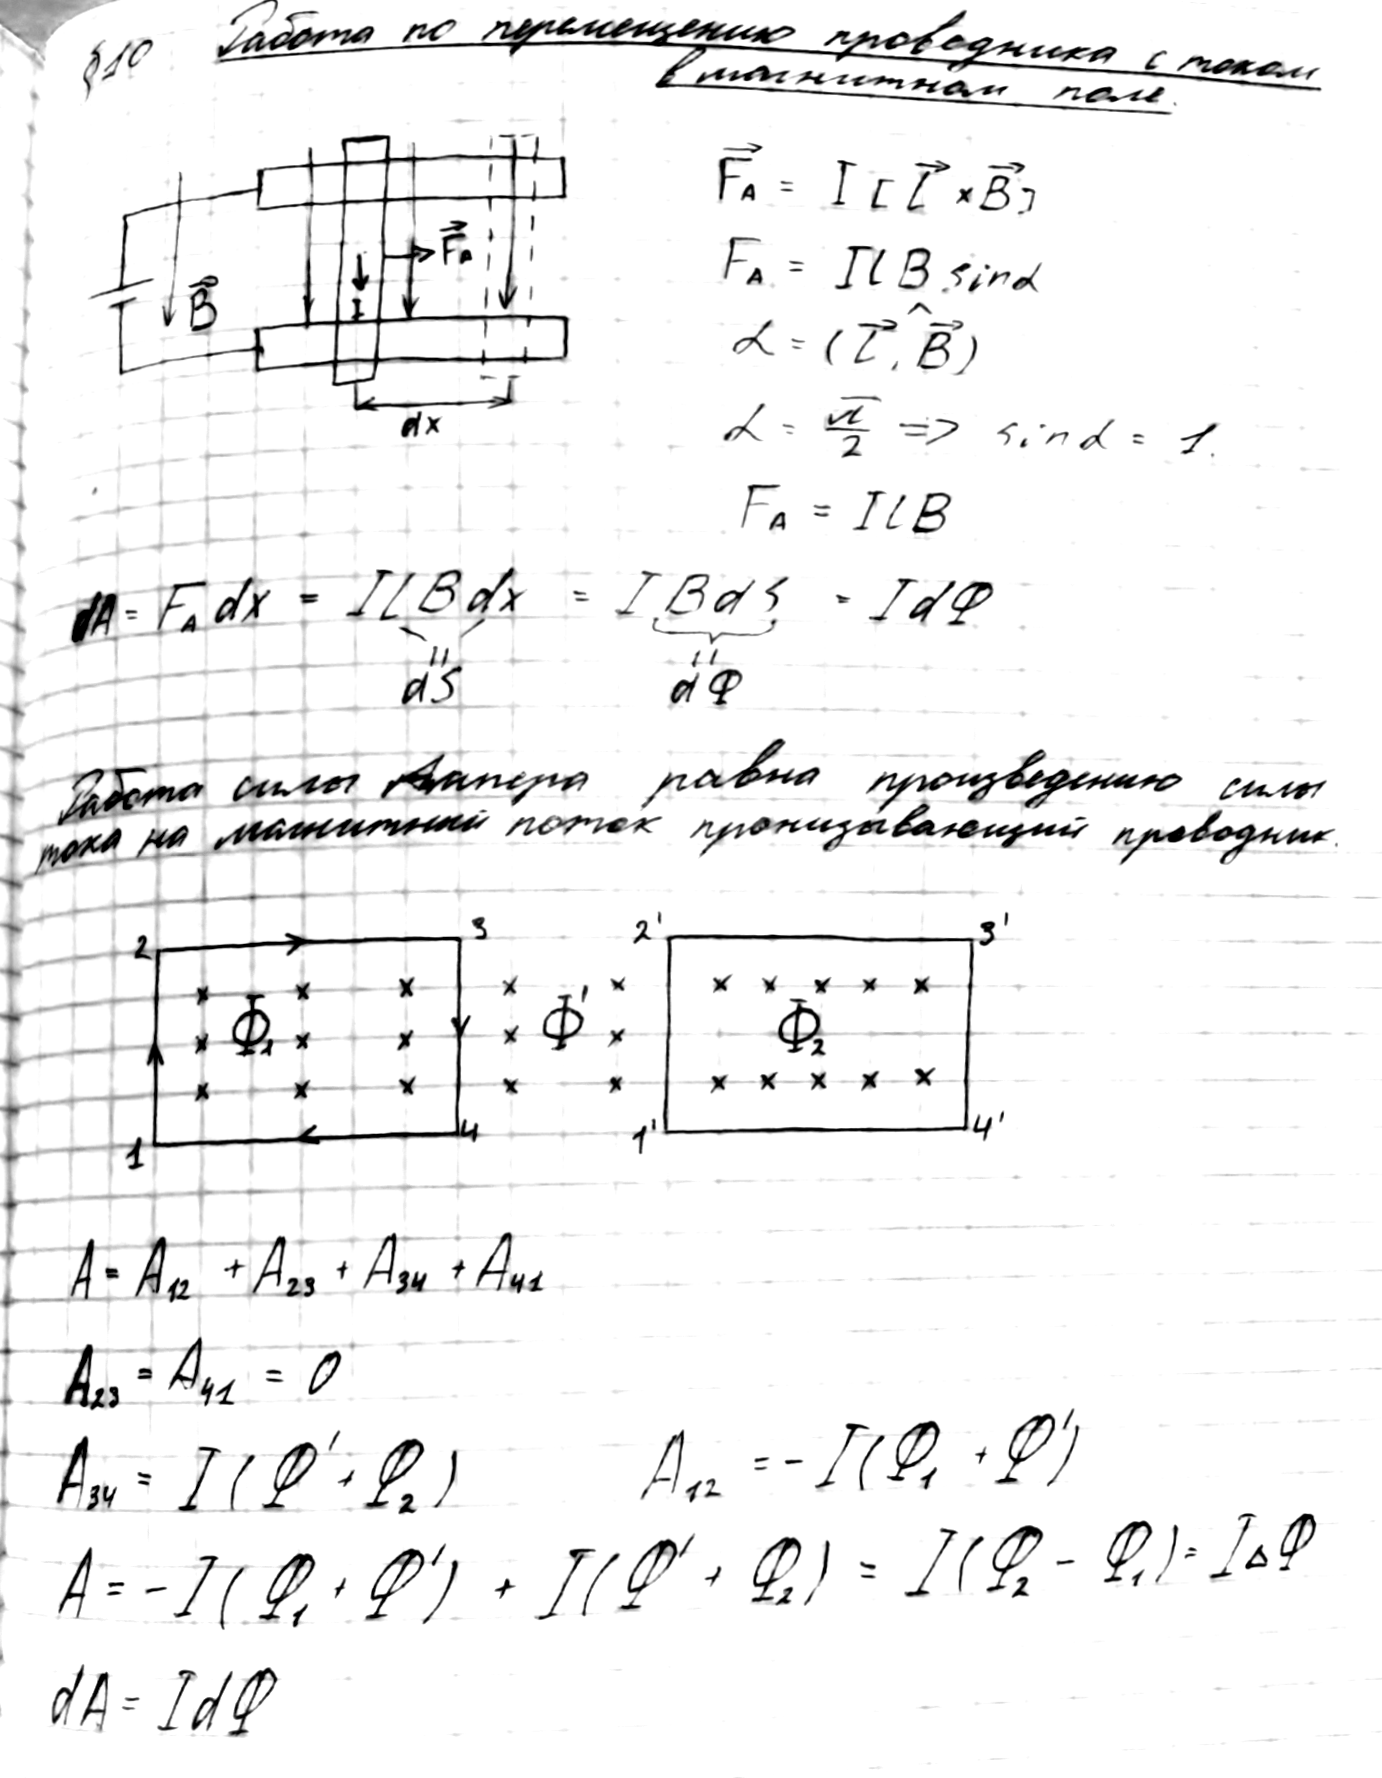 §10 Работа по перемещению проводника с током
в магнитном поле.
F⃗_A = I [l⃗ × B⃗]
F⃗_A
I
B⃗
F_A = I l B sinα
α = (l⃗,^B⃗)
dx
α = π/2 => sinα = 1.
F_A = I l B
dA = F_A dx = I l B dx = I B dS = I dФ
dS
dФ
Работа силы Ампера равна произведению силы
тока на магнитный поток пронизывающий проводник.
2 3 2' 3'
Ф₁ Ф' Ф₂
1 4 1' 4'
A = A₁₂ + A₂₃ + A₃₄ + A₄₁
A₂₃ = A₄₁ = 0
A₃₄ = I(Ф' + Ф₂) A₁₂ = -I(Ф₁ + Ф')
A = -I(Ф₁ + Ф') + I(Ф' + Ф₂) = I(Ф₂ - Ф₁) = IΔФ
dA = IdФ